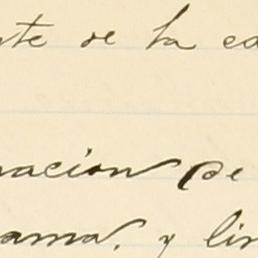 nte de la ca
nacion de
ama, y lin